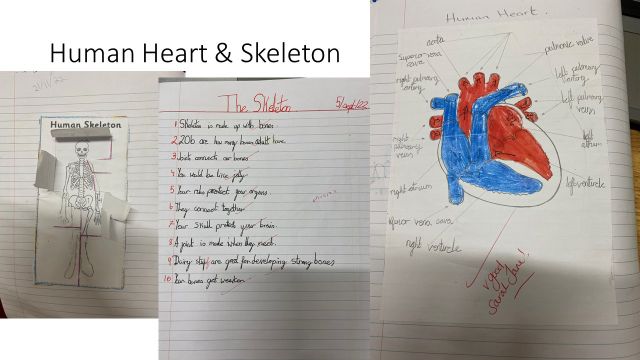 Human Heart & Skeleton
2/11/22
Human Skeleton
The Skeleton 5/sept/22
1 Skeleton is made up with bones
2 206 are how many bones adult have.
3 Joints connects our bones
4 You would be like jelly
5 Your ribs protect your organs
6 They connect together
7 Your skull protects your brain.
8 A joint is made when they meet.
9 Dairy are good for developing strong bones
10 bones get weaker
Human Heart.
aorta
superior vena cava
pulmonic valve
right pulmonary artery
left pulmonary artery
left pulmonary veins
right pulmonary veins
left atrium
right atrium
left ventricle
inferior vena cava
right ventricle
v good
Sarah Jane!